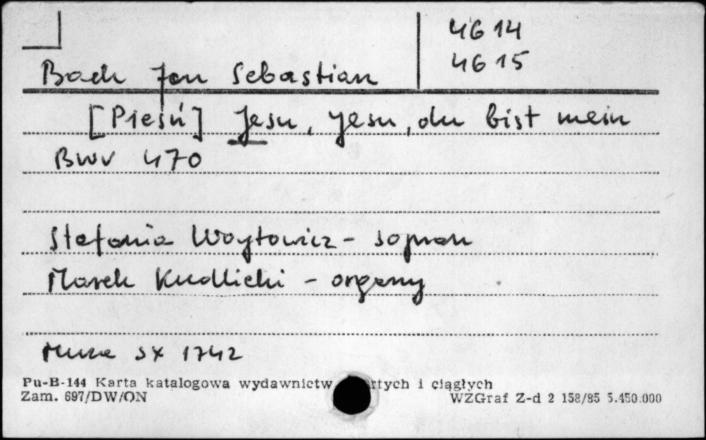 4614
4615
Bach Jan Sebastian
[Pieśń] Jesu, Jesu, du bist mein
BWV 470
Stefania Woytowicz - sopran
Marek Kudlicki - organy
Muza SX 1742
Pu-B-144 Karta katalogowa wydawnictw rtych i ciągłych
Zam. 697/DW/ON WZGraf Z-d 2 158/85 5.450.000